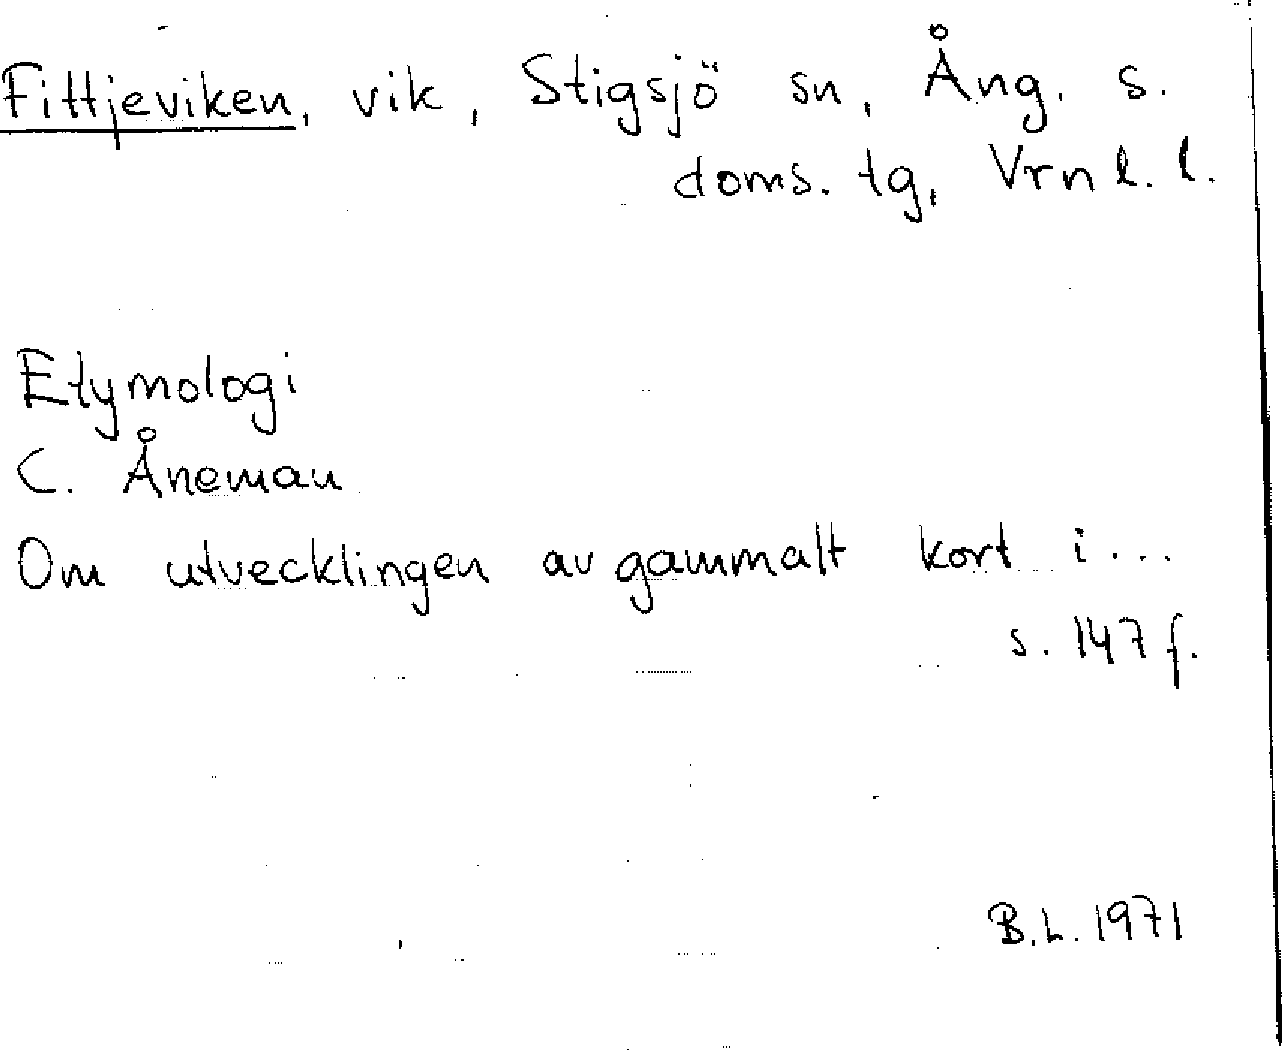 Fittjeviken, vik, Stigsjö sn, Ång. s.
doms. tg, Vrn l. l.
Etymologi
C. Åneman
Om utvecklingen av gammalt kort i...
s. 147 f.
B.L. 1971